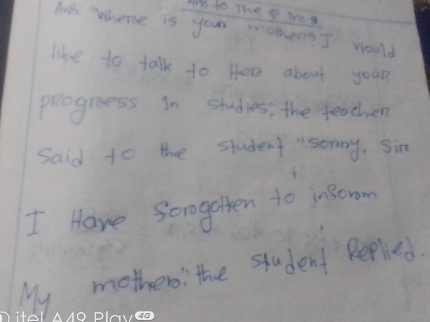 Ans to The Q No a
Ans. "Where is your mother? I would
like to talk to Her about your
progress in studies", the teacher
said to the student "sorry, Sir
I Have forogotten to inform
My mother." the student Replied.
itel A49 Play 4G